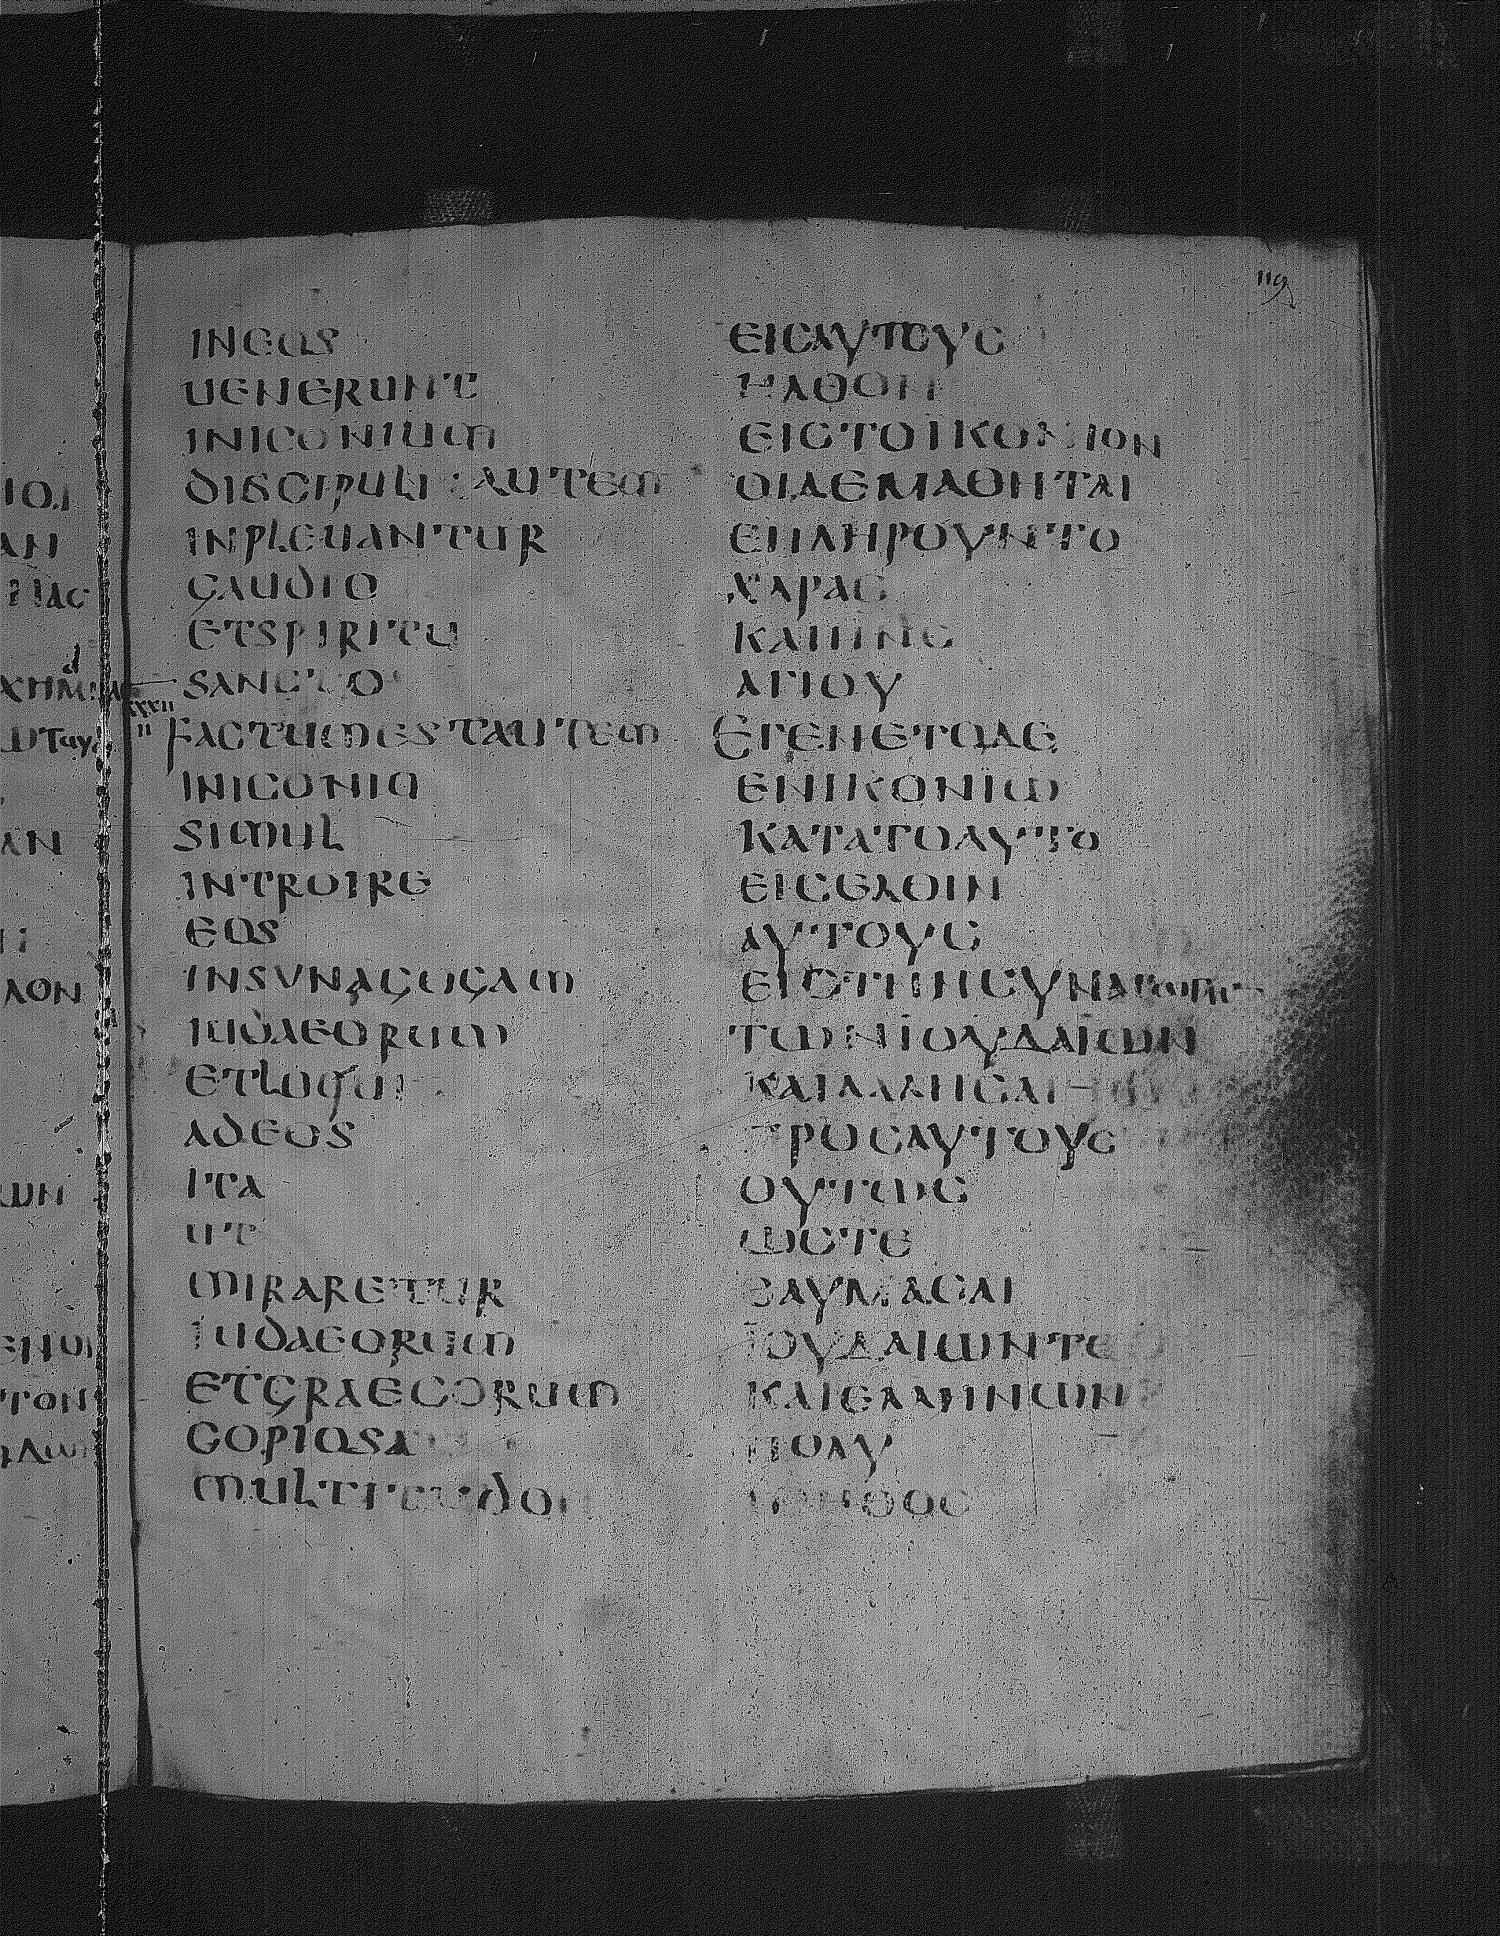 119
IN EOS
UENERUNT
IN ICONIUM
DISCIPULI AUTEM
INPLEUANTUR
GAUDIO
ET SPIRITU
SANCTO
FACTUM EST AUTEM
IN ICONIO
SIMUL
INTROIRE
EOS
IN SYNAGOGAM
IUDAEORUM
ET LOQUI
AD EOS
ITA
UT
MIRARETUR
IUDAEORUM
ET GRAECORUM
COPIOSA
ΕΙΣ ΑΥΤΟΥΣ
ΗΛΘΟΝ
ΕΙΣ ΤΟ ΙΚΟΝΙΟΝ
ΟΙ ΔΕ ΜΑΘΗΤΑΙ
ΕΠΛΗΡΟΥΝΤΟ
ΧΑΡΑΣ
ΚΑΙ ΠΝΣ
ΑΓΙΟΥ
ΕΓΕΝΕΤΟ ΔΕ
ΕΝ ΙΚΟΝΙΩ
ΚΑΤΑ ΤΟ ΑΥΤΟ
ΕΙΣΕΛΘΙΝ
ΑΥΤΟΥΣ
ΕΙΣ ΤΗΝ ΣΥΝΑΓΩΓΗΝ
ΤΩΝ ΙΟΥΔΑΙΩΝ
ΚΑΙ ΛΑΛΗΣΑΙ
ΠΡΟΣ ΑΥΤΟΥΣ
ΟΥΤΩΣ
ΩΣΤΕ
ΘΑΥΜΑΣΑΙ
ΙΟΥΔΑΙΩΝ ΤΕ
ΚΑΙ ΕΛΛΗΝΩΝ
ΠΟΛΥ